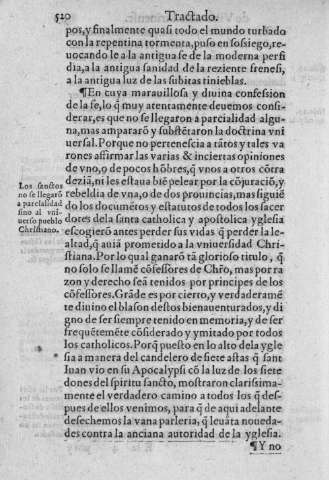 520 Tractado.
pos, y finalmente quasi todo el mundo turbado
con la repentina tormenta, puso en sosiego, re-
uocando le a la antigua fe de la moderna perfi
dia, a la antigua sanidad de la reziente frenesi,
a la antigua luz de las subitas tinieblas.
¶En cuya marauillosa y diuina confession
de la fe, lo q̃ muy atentamente deuemos consi-
derar, es que no se llegaron a parcialidad algu-
na, mas ampararõ y substẽtaron la doctrina vni
uersal. Porque no pertenescia a tãtos y tales va
rones affirmar las varias & inciertas opiniones
de vno, o de pocos hõbres, q̃ vnos a otros cõtra
deziã, ni les estaua biẽ pelear por la cõjuraciõ, y
rebeldia de vna, o de dos prouincias, mas siguiẽ
do los documẽtos y estatutos de todos los sacer
dotes de la sancta catholica y apostolica yglesia
escogierõ antes perder sus vidas q̃ perder la le-
altad, q̃ auiã prometido a la vniuersidad Chri-
stiana. Por lo qual ganarõ tã glorioso titulo, q̃
no solo se llamẽ cõfessores de Chrõ, mas por ra
zon y derecho seã tenidos por principes de los
cõfessores. Grãde es por cierto, y verdaderamẽ
te diuino el blason destos bienauenturados, y di
gno de ser siempre tenido en memoria, y de ser
frequẽtemẽte cõsiderado y ymitado por todos
los catholicos. Porq̃ puesto en lo alto de la ygle
sia a manera del candelero de siete astas q̃ sant
Iuan vio en su Apocalypsi cõ la luz de los siete
dones del spiritu sancto, mostraron clarissima-
mente el verdadero camino a todos los q̃ des-
pues de ellos venimos, para q̃ de aqui adelante
desechemos la vana parleria, q̃ leuãta noueda-
des contra la anciana autoridad de la yglesia.
¶Y no
Los sanctos
no se llegarõ
a parcialidad
sino al vni-
uerso pueblo
Christiano.